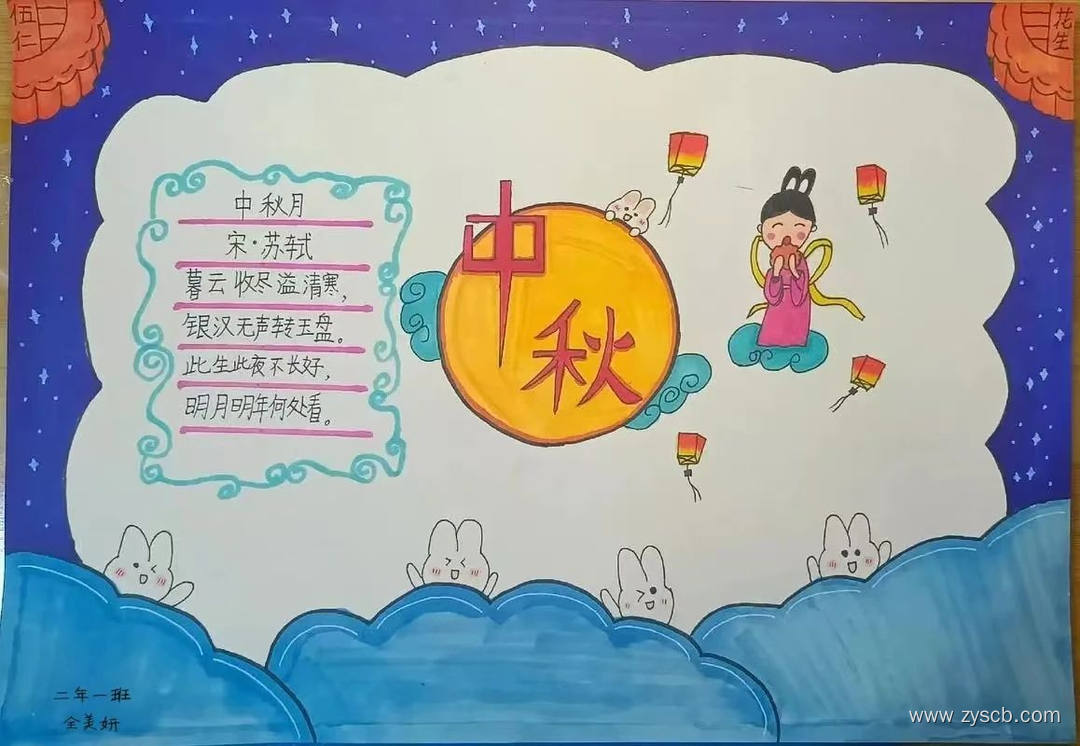 伍仁
花生
中秋月
宋·苏轼
暮云收尽溢清寒，
银汉无声转玉盘。
此生此夜不长好，
明月明年何处看。
中秋
二年一班
全美妍
www.zyscb.com